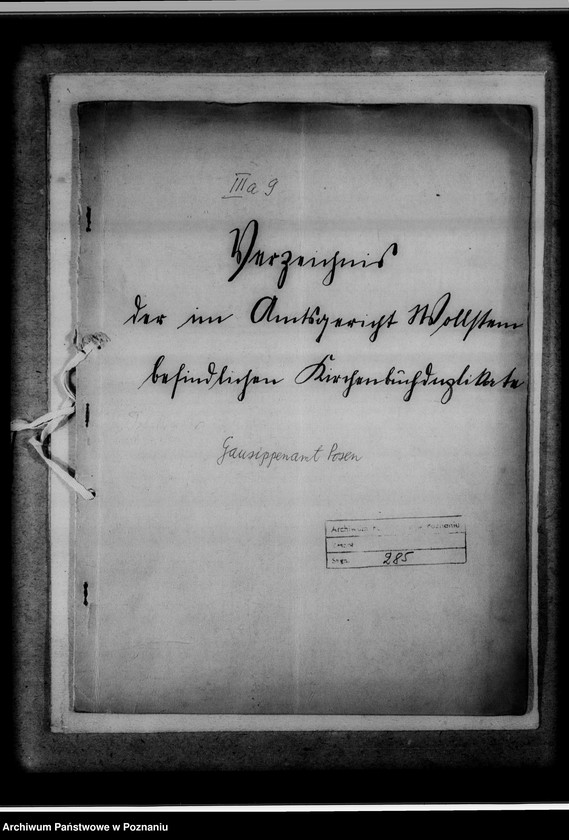 III a 9
Verzeichnis
der im Amtsgericht Wollstein
befindlichen Kirchenbuchduplikate
Gausippenamt Posen
Archiwum Poznaniu
Sygn. 285
Archiwum Państwowe w Poznaniu